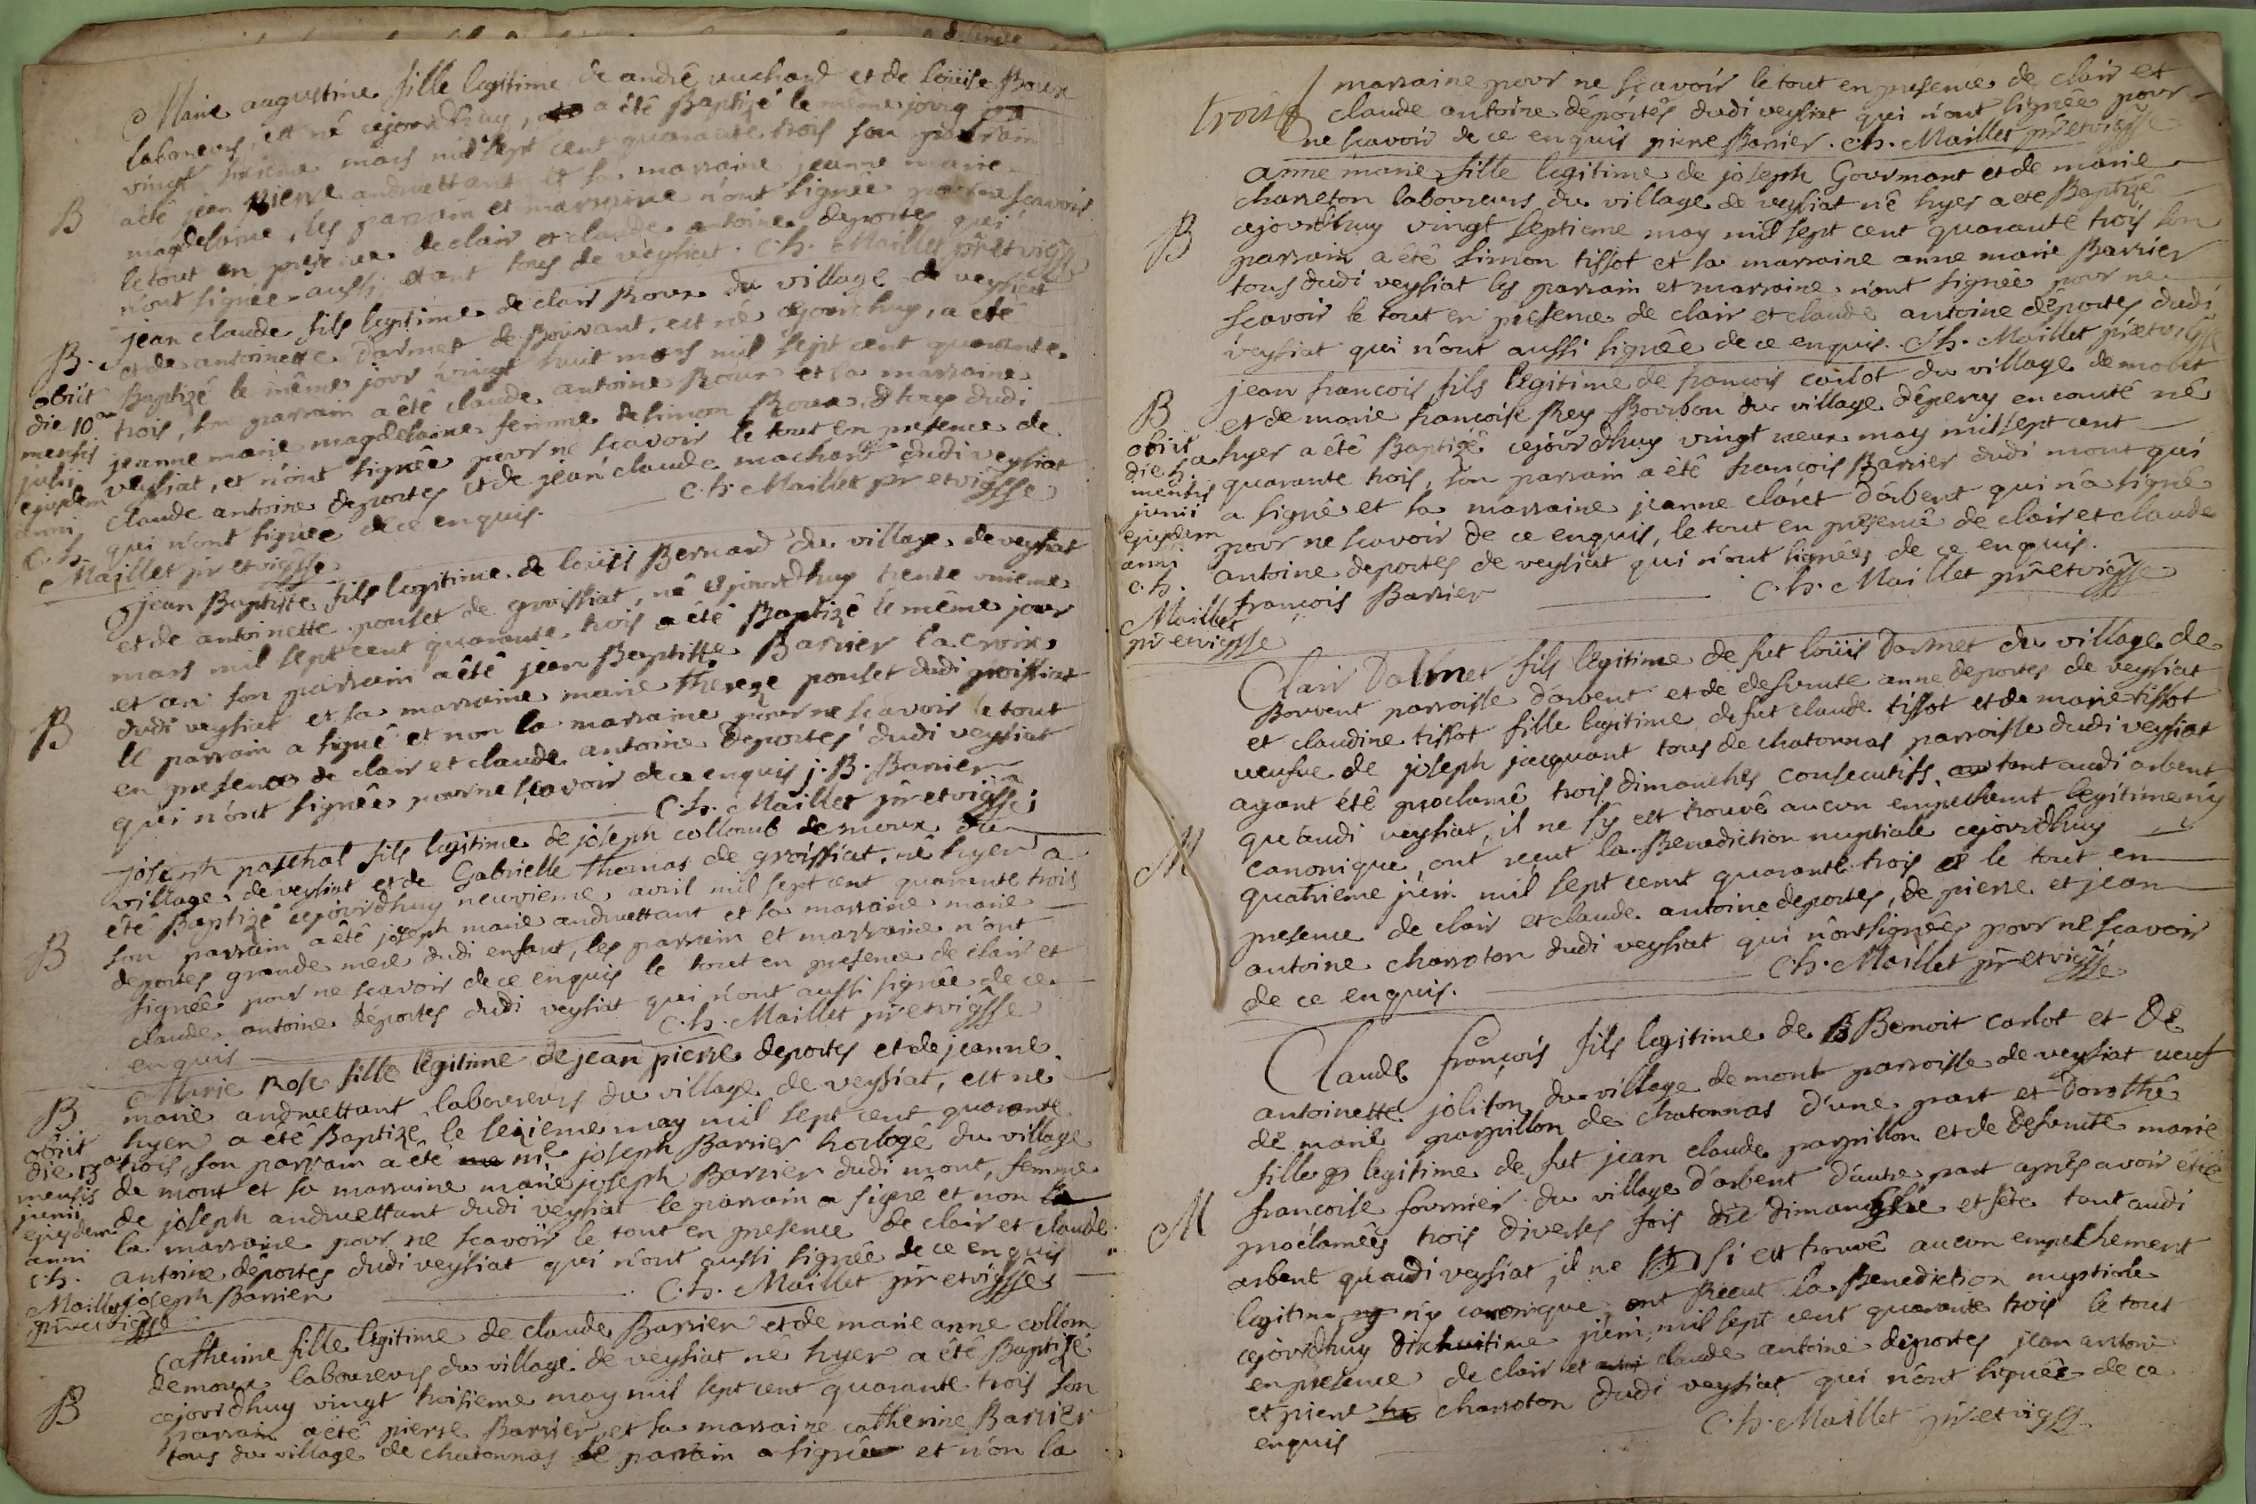 Marie augustine fille legitime de andré vuchard et de loüise Roux
laboureurs, est né cejourd'huy, a été Baptizé le meme jour
vingt mars mil sept cent quarante trois son parrain
B
a été jean pierre andruettant et sa marraine jeanne marie
magdelaine, les parrain et marraine n'ont signée pour ne scavoir
le tout en presence de clair et claude antoine deportes qui
n'ont signée aussi étant tous de veyziat. C. h. Maillet pr̃ et vig͠sse
jean claude fils legitime de clair Roux du village de veyziat
et de antoinette Darmet de Bouvant, est né cejourd'huy, a été
Baptizé le même jour vingt huit mars mil sept cent quarante
trois, son parrain a été claude antoine Roux et sa marraine
jeanne marie magdelaine femme de simon Roux, tous dudi
veyziat, et n'ont signée pour ne scavoir le tout en presence de
claude antoine deportes et de jean claude machard dudi veyziat
qui n'ont signée de ce enquis. C. h. Maillet pr et vigsse
B.
obiit
die 10ma
mensis
julii
ejusdem
anni
C. h.
Maillet pr et vigsse
jean Baptiste fils legitime de loüis Bernard du village de veyziat
et de antoinette poulet de groissiat, né cejourd'huy trente unieme
mars mil sept cent quarante trois a été Baptizé le même jour
et an son parrain a été jean Baptiste Barrier la croix
B
dudi veyziat et sa marraine marie thereze poulet dudi groissiat
le parrain a signé et non la marraine pour ne scavoir le tout
en presence de clair et claude antoine deportes dudi veyziat
qui n'ont signée pour ne scavoir de ce enquis j. B. Barrier
C. h. Maillet pr̃ et vigsse
joseph paschal fils legitime de joseph collomb demoux du
village de veyziat et de Gabrielle thomas de groissiat, né hyer a
été Baptizé cejourd'huy neuvieme avril mil sept cent quarante trois
son parrain a été joseph marie andruettant et sa marraine marie
B
deportes grande mere dudi enfant, les parrain et marraine n'ont
signée pour ne scavoir de ce enquis le tout en presence de clair et
claude antoine deportes dudi veyziat qui n'ont aussi signée de ce
enquis C. h. Maillet pr̃ et vigsse
Marie Rose fille legitime de jean pierre deportes et de jeanne
marie andruettant laboureurs du village de veyziat, est né
hyer a été Baptizé le seizieme may mil sept cent quarante
trois son parrain a été me joseph Barrier horlogé du village
de mont et sa marraine marie joseph Barrier dudi mont, femme
de joseph andruettant dudi veyziat le parrain a signé et non
la marraine pour ne scavoir le tout en presence de clair et claude
antoine deportes dudi veyziat qui n'ont aussi signée de ce enquis
joseph Barrier C. h. Maillet pr̃ et vigsse
B
obiit
die 13a
mensis
junii
ejusdem
anni
C. h.
Maillet
pr̃ et vigsse
Catherine fille legitime de claude Barrier et de marie anne collom
demoux laboureurs du village de veyziat né hyer a été Baptizé
cejourd'huy vingt troisieme may mil sept cent quarante trois son
B
parrain a été pierre Barrier et sa marraine catherine Barrier
tous du village de chatonnas le parrain a signée et n'on la
trois
marraine pour ne scavoir le tout en presence de clair et
claude antoine deportes dudi veyziat qui n'ont signée pour
ne scavoir de ce enquis pierre Barrier. C. h. Maillet pr̃ et vigsse
anne marie fille legitime de joseph Gourmant et de marie
charreton laboureurs du village de veyziat né hyer a été Baptizé
B
cejourd'huy vingt septieme may mil sept cent quarante trois son
parrain a été simon tissot et sa marraine anne marie Barrier
tous dudi veyziat les parrain et marraine n'ont signée pour ne
scavoir le tout en presence de clair et claude antoine deportes dudi
veyziat qui n'ont aussi signée de ce enquis. C. h. Maillet pr̃ et vigsse
jean francois fils legitime de francois carlot du village de mont
et de marie francoise Rey Bourbon du village d'epercy en comté né
hyer a été Baptizé cejourd'huy vingt neuf may mil sept cent
quarante trois, son parrain a été francois Barrier dudi mont qui
a signé et sa marraine jeanne claret d'arbent qui n'a signé
pour ne scavoir de ce enquis, le tout en presence de clair et claude
antoine deportes de veyziat qui n'ont signées de ce enquis.
francois Barrier C. h. Maillet pr̃ et vigsse
B
obiit
die 5a
mensis
junii
ejusdem
anni
C. h.
Maillet
pr et vigsse
Clair Dalmet fils legitime de fut loüis Darmet du village de
Bouvent parroisse d'arbent et de defunte anne deportes de veyziat
et claudine tissot fille legitime de fut claude tissot et de marie tissot
veufve de joseph jacquant tous de chatonnas parroisse dudi veyziat
ayant été proclamé trois dimanches consecutifs tant audi arbent
qu'audi veyziat, il ne s'y est trouvé aucun empechement legitime n'y
M
canonique ont reçut la Benediction nuptiale cejourd'huy
quatrieme juin mil sept cent quarante trois et le tout en
presence de clair et claude antoine deportes, de pierre et jean
antoine charroton dudi veyziat qui n'ont signées pour ne scavoir
de ce enquis. C. h. Maillet pr̃ et vigsse
Claude francois fils legitime de Benoit carlot et De
antoinette joliton du village de mont parroisse de veyziat veuf
de marie parpillon de chatonnas d'une part et Dorothé
fille legitime de fut jean claude parpillon et de Defunte marie
francoise fournier du village d'arbent d'autre part apres avoir été
M
proclamées trois diverses fois dimanche et fête tant audi
arbent qu'audi veyziat, il ne si est trouvé aucun empechement
legitime n'y canonique, ont Receut la Benediction nuptiale
cejourd'huy dixhuitieme juin mil sept cent quarante trois le tout
en presence de clair et claude antoine deportes jean antoine
et pierre charroton dudi veyziat qui n'ont signée de ce
enquis C. h. Maillet pr̃ et vigsse